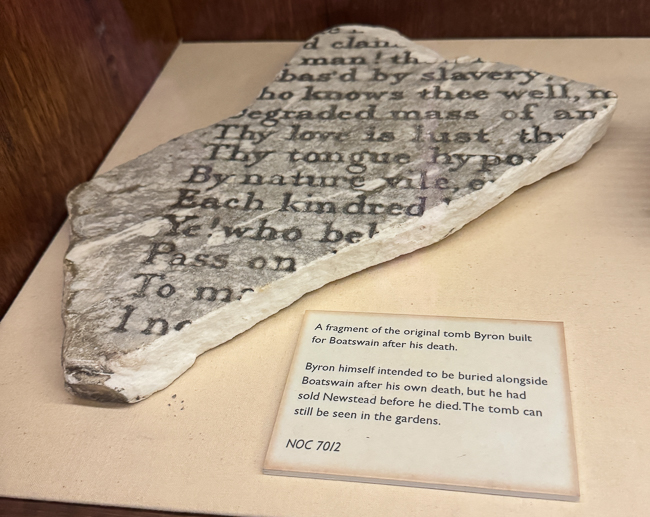 d clai
man! th
bas'd by slavery,
ho knows thee well, m
Degraded mass of an
Thy love is lust th
Thy tongue hypo
By nature vile, e
Each kindred
Ye! who be
Pass on
To ma
I ne
A fragment of the original tomb Byron built
for Boatswain after his death.
Byron himself intended to be buried alongside
Boatswain after his own death, but he had
sold Newstead before he died. The tomb can
still be seen in the gardens.
NOC 70/2